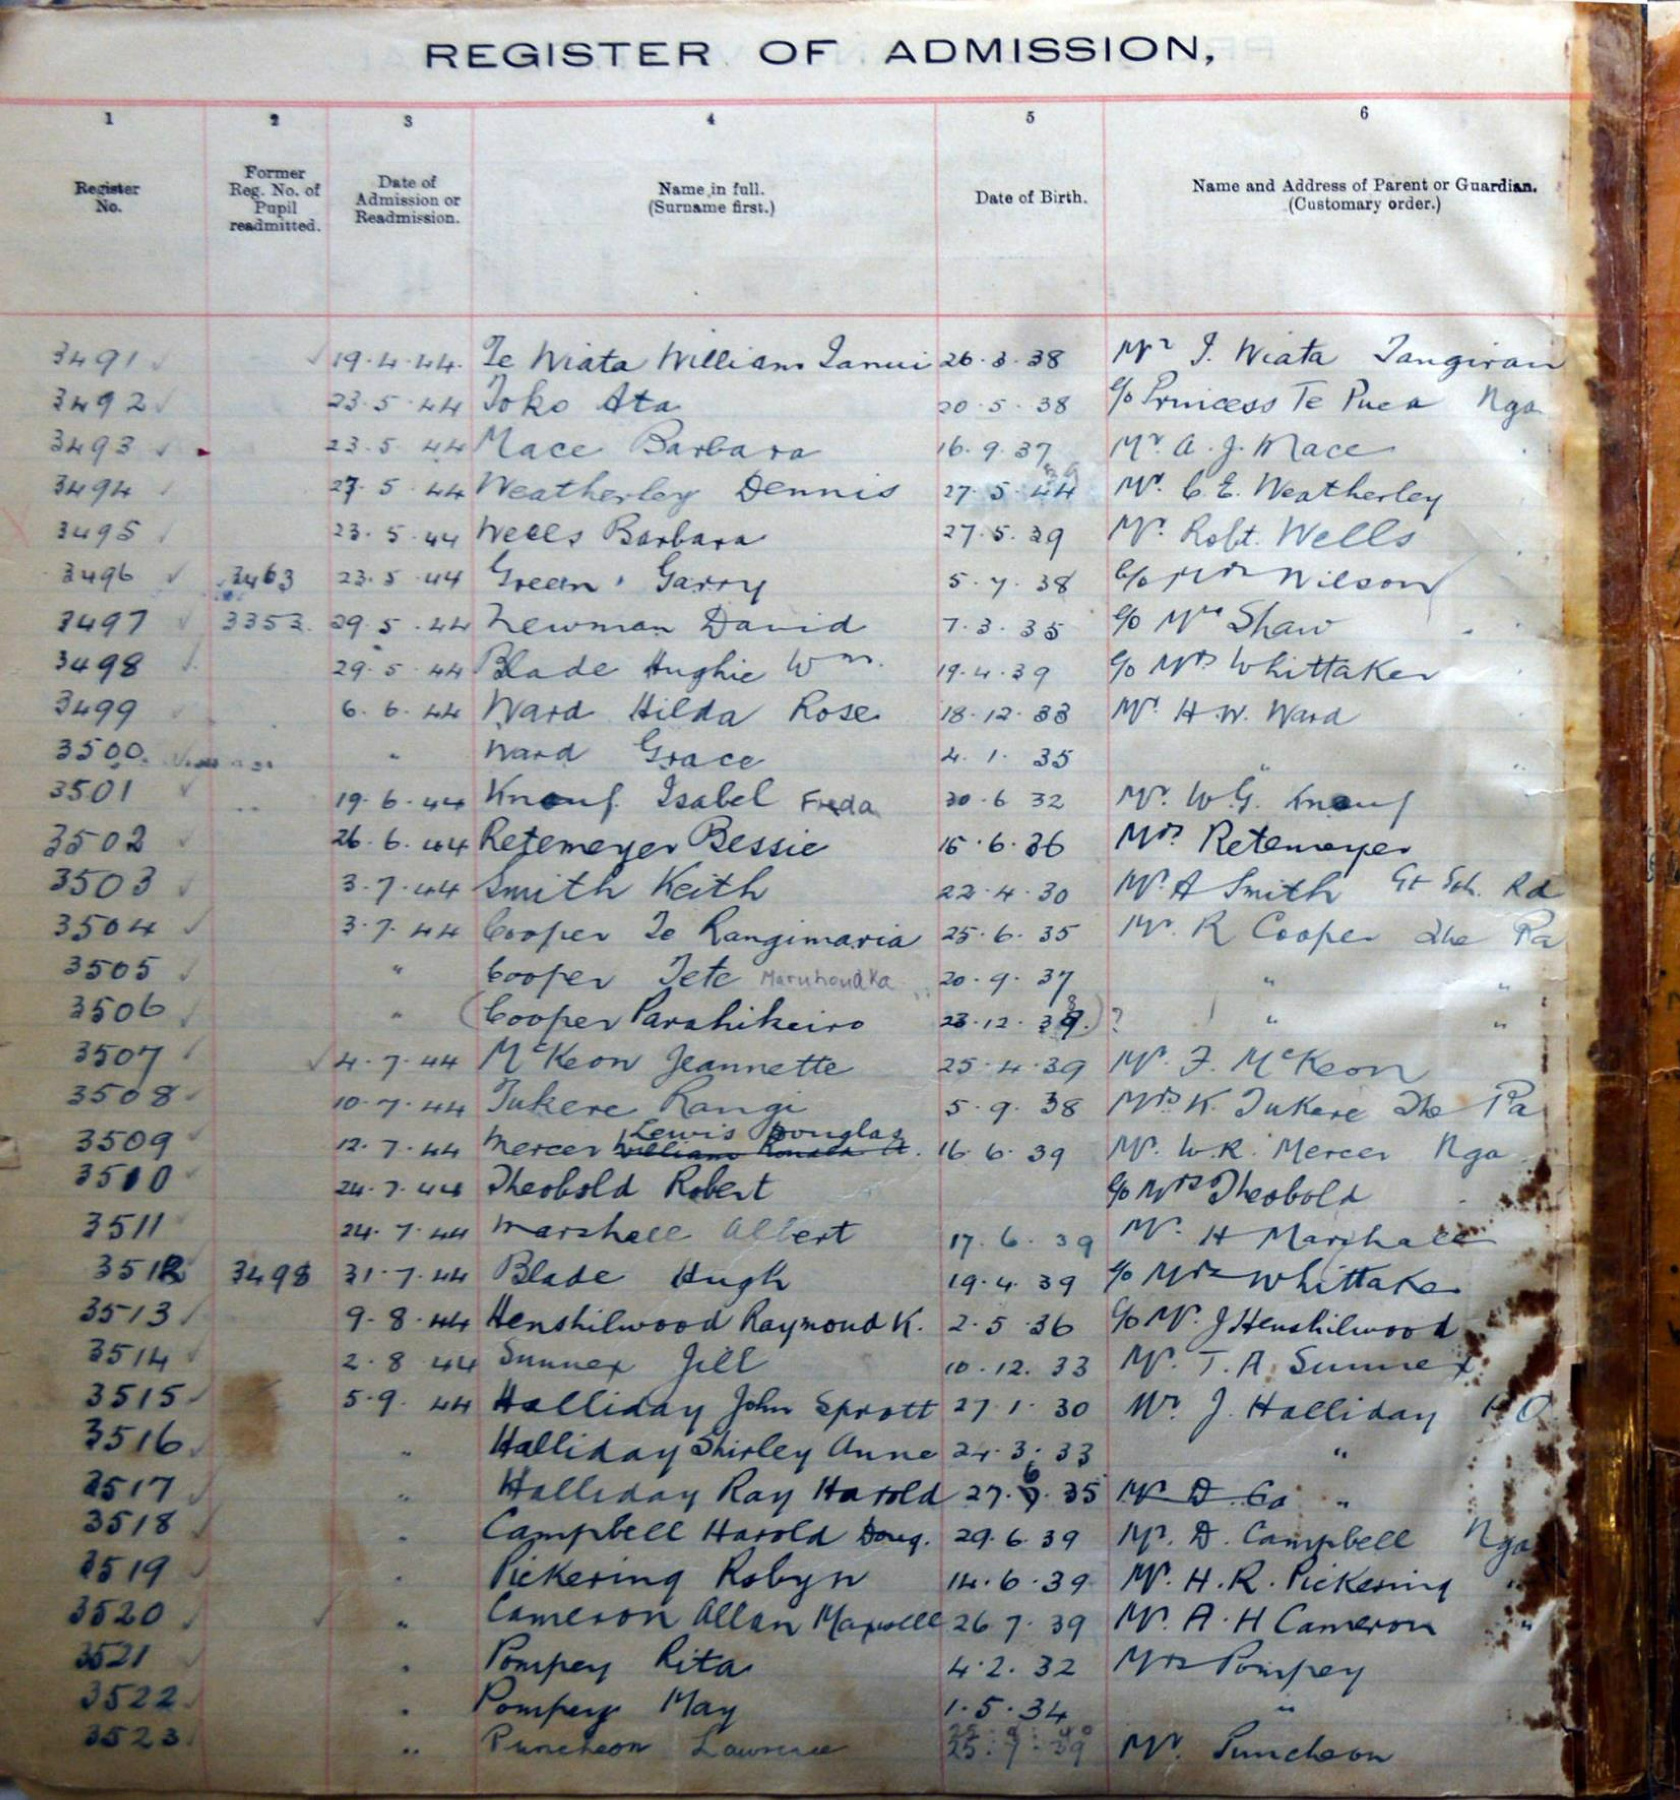 REGISTER OF ADMISSION,
1 2 3 4 5 6
Register No. Former Reg. No. of Pupil readmitted. Date of Admission or Readmission. Name in full. (Surname first.) Date of Birth. Name and Address of Parent or Guardian. (Customary order.)
3491 19.4.44. Te Wiata William Tanui 26.3.38 Mr I. Wiata
3492 23.5.44 Toko Ata 20.5.38 c/o Princess Te Puea Nga
3493 23.5.44 Mace Barbara 16.9.37 Mr A. J. Mace
3494 27.5.44 Weatherley Dennis 27.5.39 Mr. C. E. Weatherley
3495 23.5.44 Wells Barbara 27.5.39 Mr. Robt. Wells
3496 3463 23.5.44 Green Garry 5.7.38 C/o Mrs Wilson
3497 3353 29.5.44 Newman David 7.3.35 c/o Mrs Shaw
3498 29.5.44 Blade Hughie Wm. 19.4.39 c/o Mrs Whittaker
3499 6.6.44 Ward Hilda Rose 18.12.33 Mr. H. W. Ward
3500 " Ward Grace 4.1.35 "
3501 19.6.44 Knauf Isabel Freda 30.6.32 Mr. W. G. Knauf
3502 26.6.44 Retemeyer Bessie 15.6.36 Mrs Retemeyer
3503 3.7.44 Smith Keith 22.4.30 Mr A Smith Gt Sth. Rd
3504 3.7.44 Cooper Te Rangimaria 25.6.35 Mr. R Cooper The Pa
3505 " Cooper Tete 20.9.37 " "
3506 " (Cooper Parahikeiro 23.12.38) ? " "
3507 4.7.44 McKeon Jeannette 25.4.39 Mr. F. McKeon
3508 10.7.44 Tukere Rangi 5.9.38 Mrs K. Tukere The Pa
3509 12.7.44 Mercer Lewis Douglas 16.6.39 Mr. W. R. Mercer Nga
3510 24.7.44 Theobold Robert c/o Mrs Theobold
3511 24.7.44 Marshall Albert 17.6.39 Mr. H Marshall
3512 3498 31.7.44 Blade Hugh 19.4.39 c/o Mrs Whittaker
3513 9.8.44 Henshilwood Raymond K. 2.5.36 c/o Mr. J Henshilwood
3514 2.8.44 Sunnex Jill 10.12.33 Mr. T. A. Sunnex
3515 5.9.44 Halliday John Sprott 27.1.30 Mr. J. Halliday P O
3516 " Halliday Shirley Anne 24.3.33 "
3517 " Halliday Ray Harold 27.6.35 Mr D. Ca "
3518 " Campbell Harold Doug. 29.6.39 Mr. D. Campbell Nga
3519 " Pickering Robyn 14.6.39 Mr. H. R. Pickering "
3520 " Cameron Allan Maxwell 26 7.39 Mr. A. H Cameron "
3521 " Pompey Rita 4.2.32 Mrs Pompey
3522 " Pompey May 1.5.34 "
3523 " Puncheon Lawrence 25.9.39 Mr. Puncheon